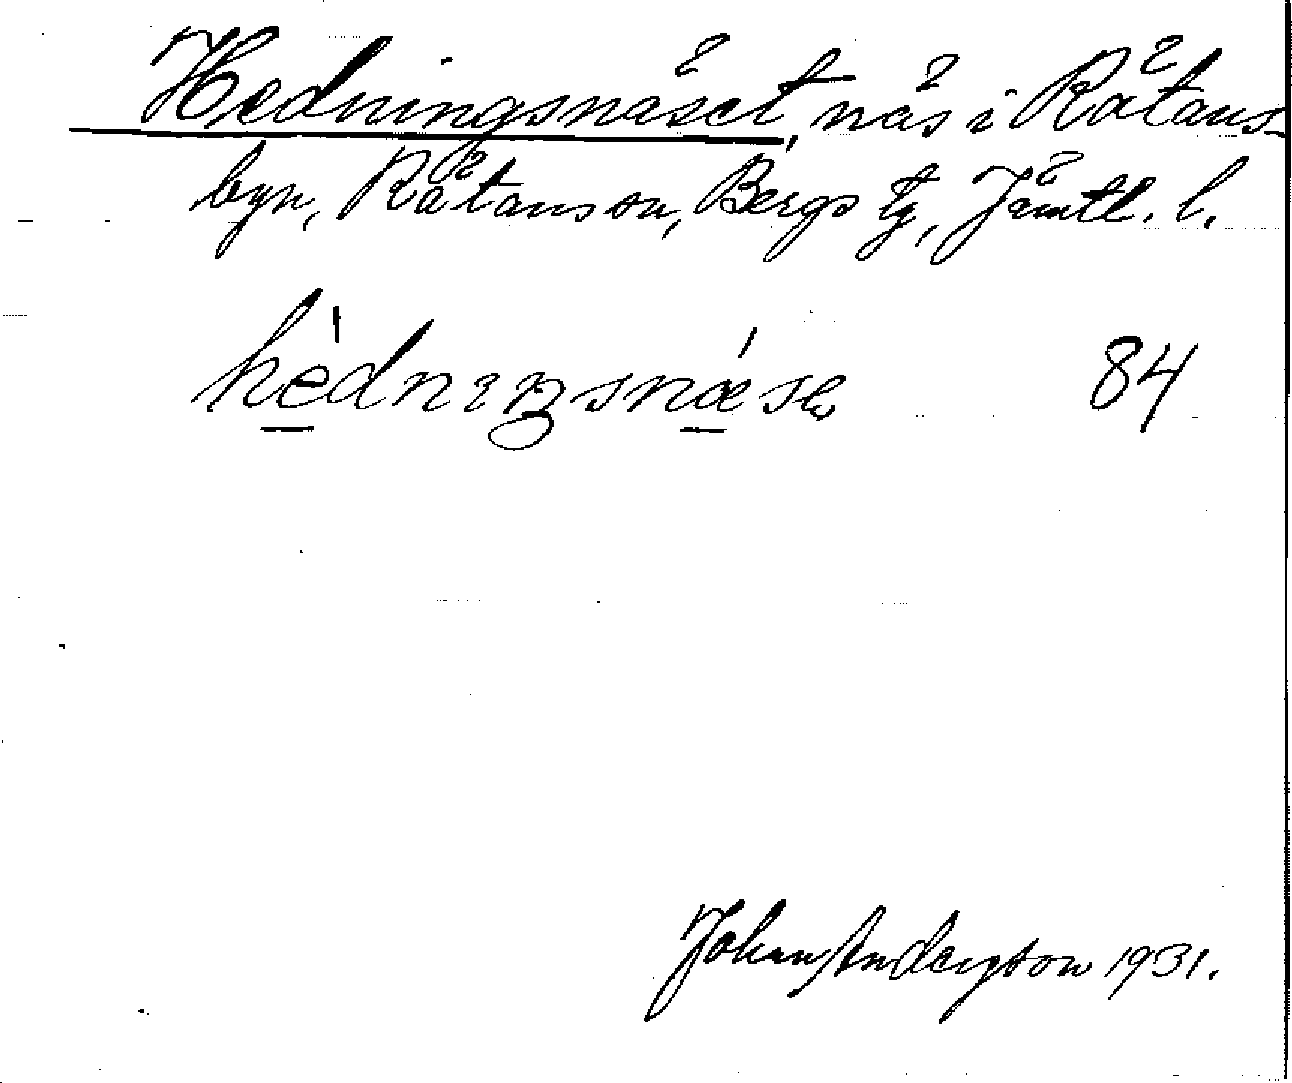 Hedningsnäset, näs i Rätans-
byn, Rätans sn, Bergs tg, Jämtl. l.
84
Johan Anderson 1931.